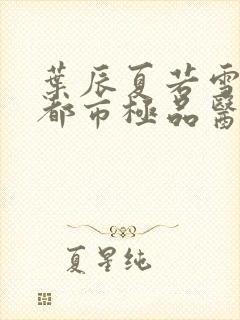 葉辰夏若雪
都市極品醫
夏星纯